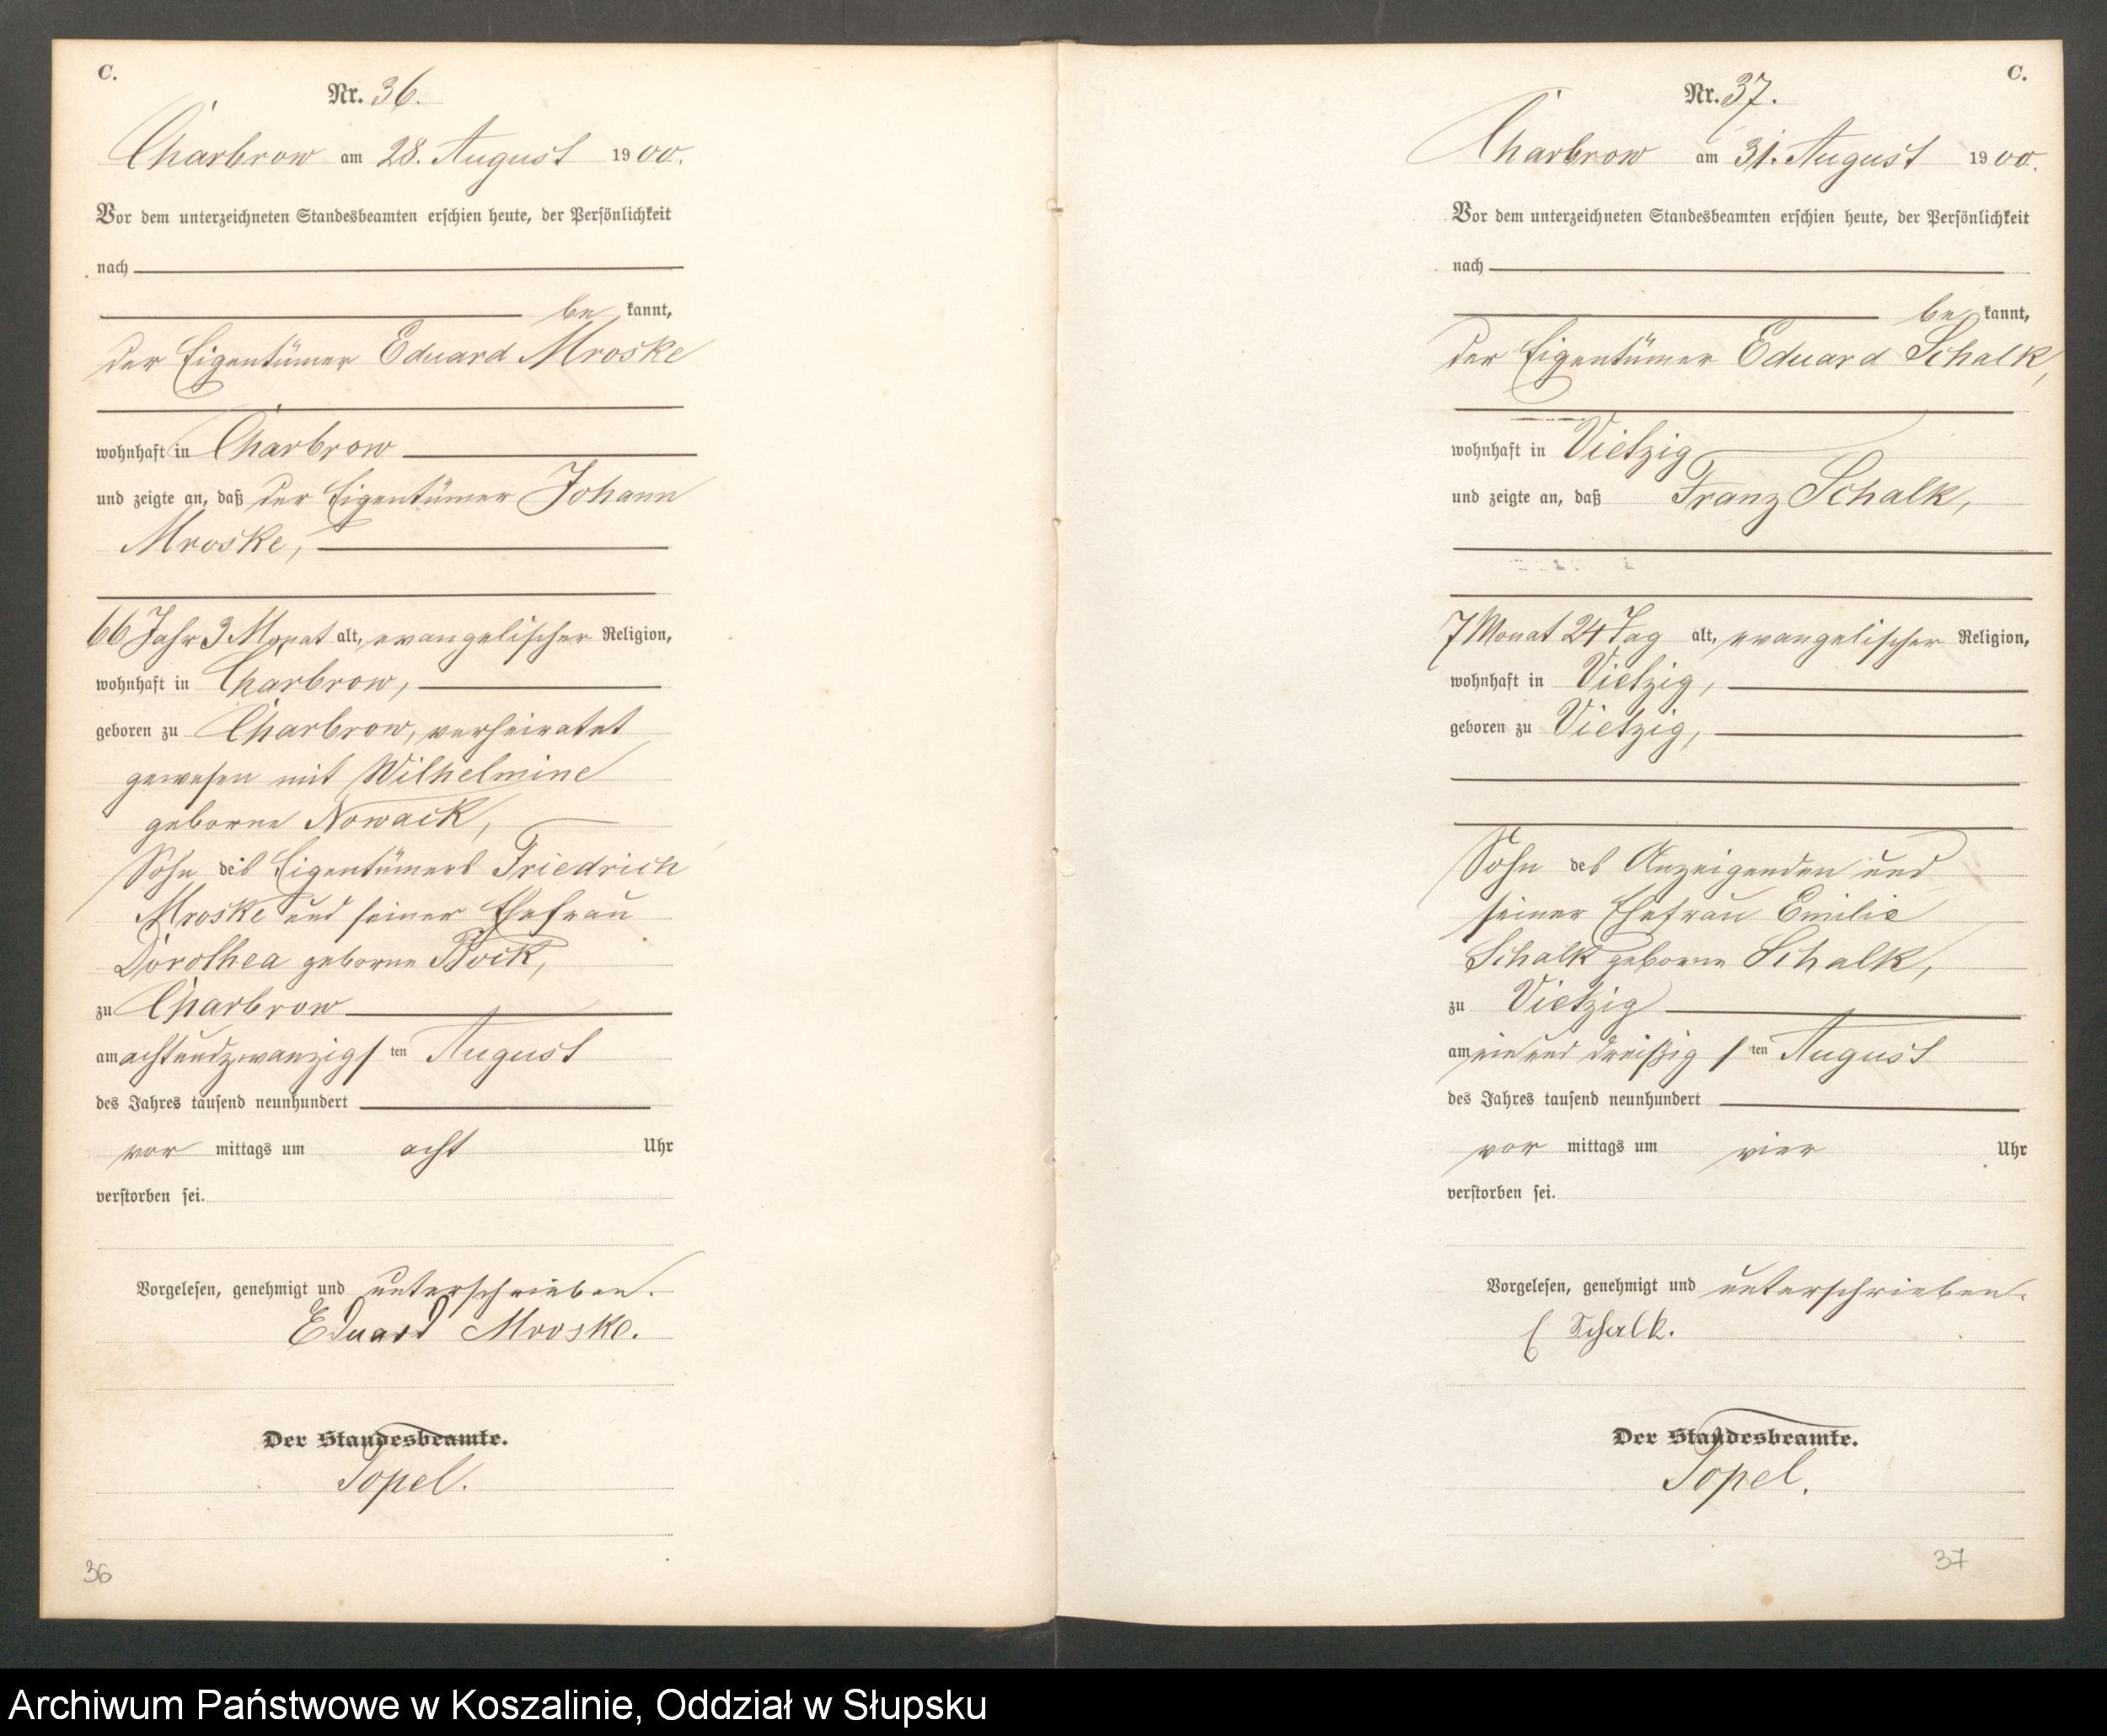 C.
Nr. 36.
Charbrow am 28. August 1900.
Vor dem unterzeichneten Standesbeamten erschien heute, der Persönlichkeit
nach
be kannt,
der Eigentümer Eduard Mroske
wohnhaft in Charbrow
und zeigte an, daß der Eigentümer Johann
Mroske,
66 Jahr 3 Monat alt, evangelischer Religion,
wohnhaft in Charbrow,
geboren zu Charbrow, verheiratet
gewesen mit Wilhelmine
geborne Nowack,
Sohn des Eigentümers Friedrich
Mroske und seiner Ehefrau
Dorothea geborne Bock,
zu Charbrow
am achtundzwanzig ten August
des Jahres tausend neunhundert
vor mittags um acht Uhr
verstorben sei.
Vorgelesen, genehmigt und unterschrieben.
Eduard Mroske.
Der Standesbeamte.
Topel.
36
C.
Nr. 37.
Charbrow am 31. August 1900.
Vor dem unterzeichneten Standesbeamten erschien heute, der Persönlichkeit
nach
be kannt,
der Eigentümer Eduard Schalk,
wohnhaft in Vietzig
und zeigte an, daß Franz Schalk,
7 Monat 24 Tag alt, evangelischer Religion,
wohnhaft in Vietzig,
geboren zu Vietzig,
Sohn des Anzeigenden und
seiner Ehefrau Emilie
Schalk geborne Schalk,
zu Vietzig
am ein und dreißig ten August
des Jahres tausend neunhundert
vor mittags um vier Uhr
verstorben sei.
Vorgelesen, genehmigt und unterschrieben.
E Schalk.
Der Standesbeamte.
Topel.
37
Archiwum Państwowe w Koszalinie, Oddział w Słupsku